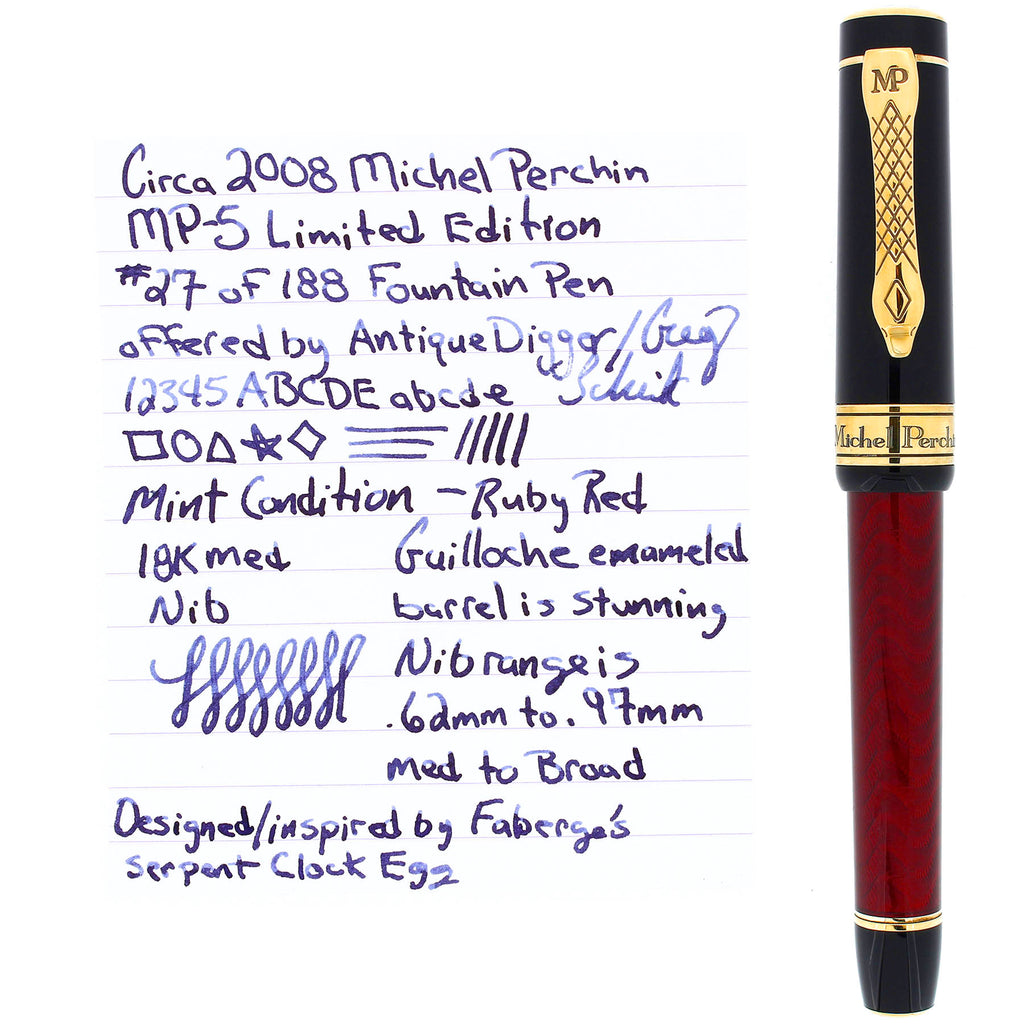 Circa 2008 Michel Perchin
MP-5 Limited Edition
#27 of 188 Fountain Pen
offered by Antique Digger/Greg
12345 ABCDE abcde
Mint Condition - Ruby Red
18K med
Nib
Guilloche enameled
barrel is stunning
Nib range is
.62mm to .97mm
med to Broad
Designed/inspired by Faberge's
Serpent Clock Egg
MP
Michel Perchin